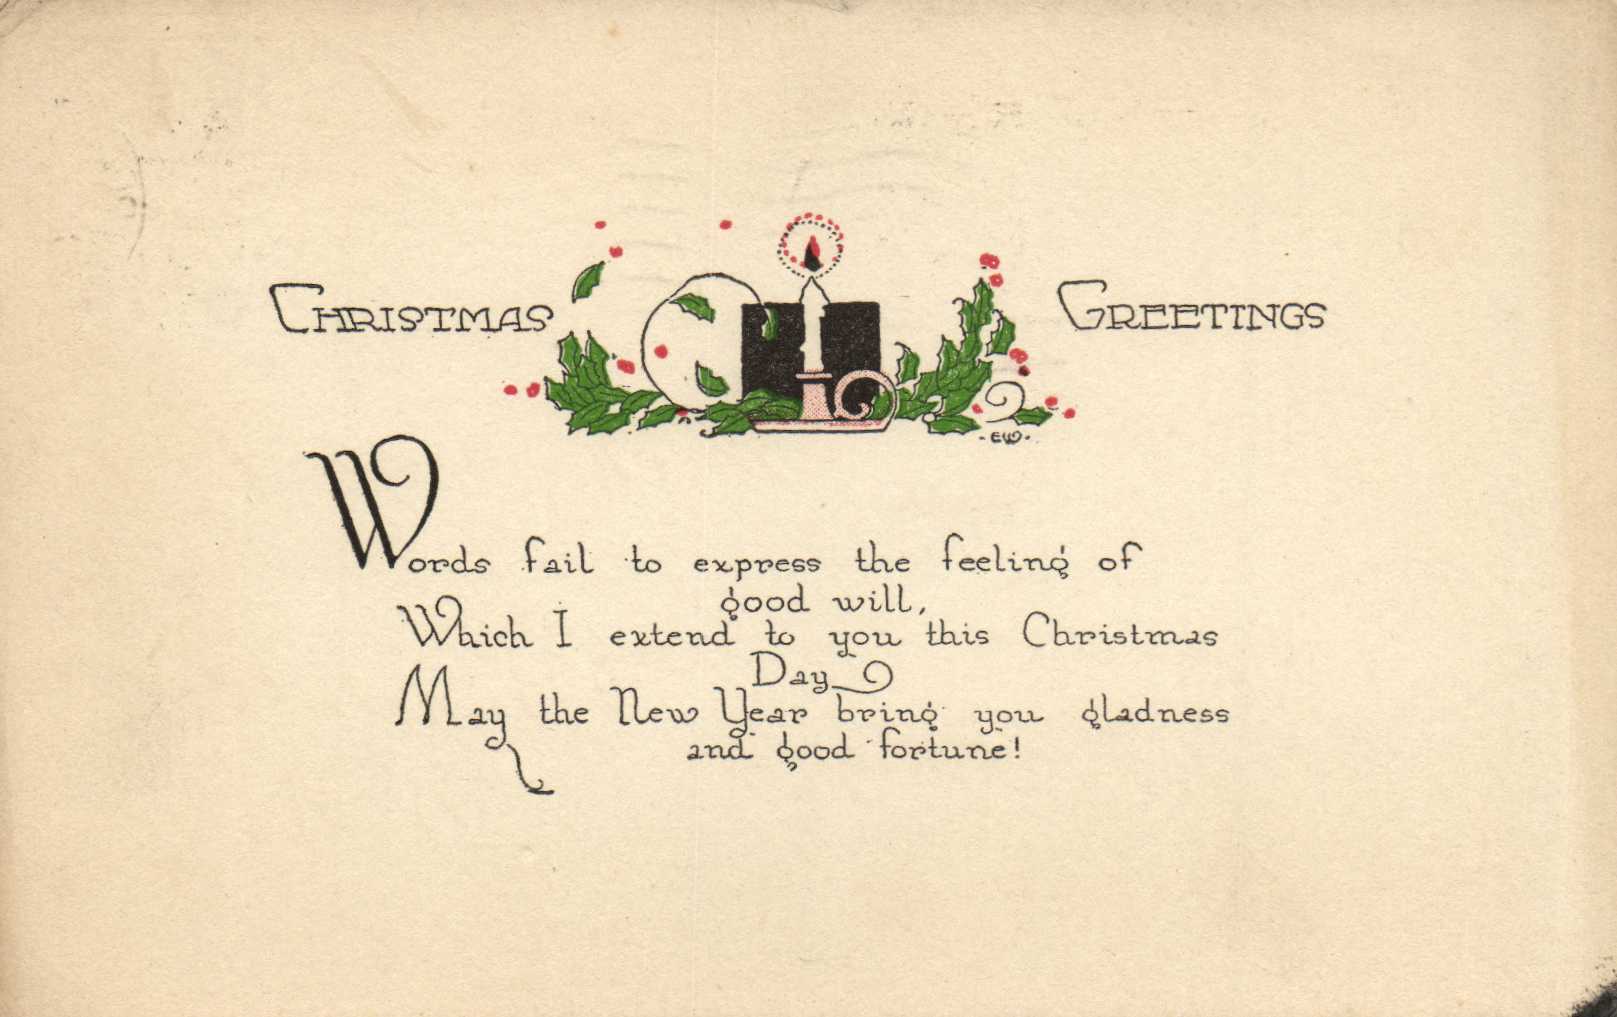 CHRISTMAS GREETINGS
-EW-
Words fail to express the feeling of
good will,
Which I extend to you this Christmas
Day
May the New Year bring you gladness
and good fortune!